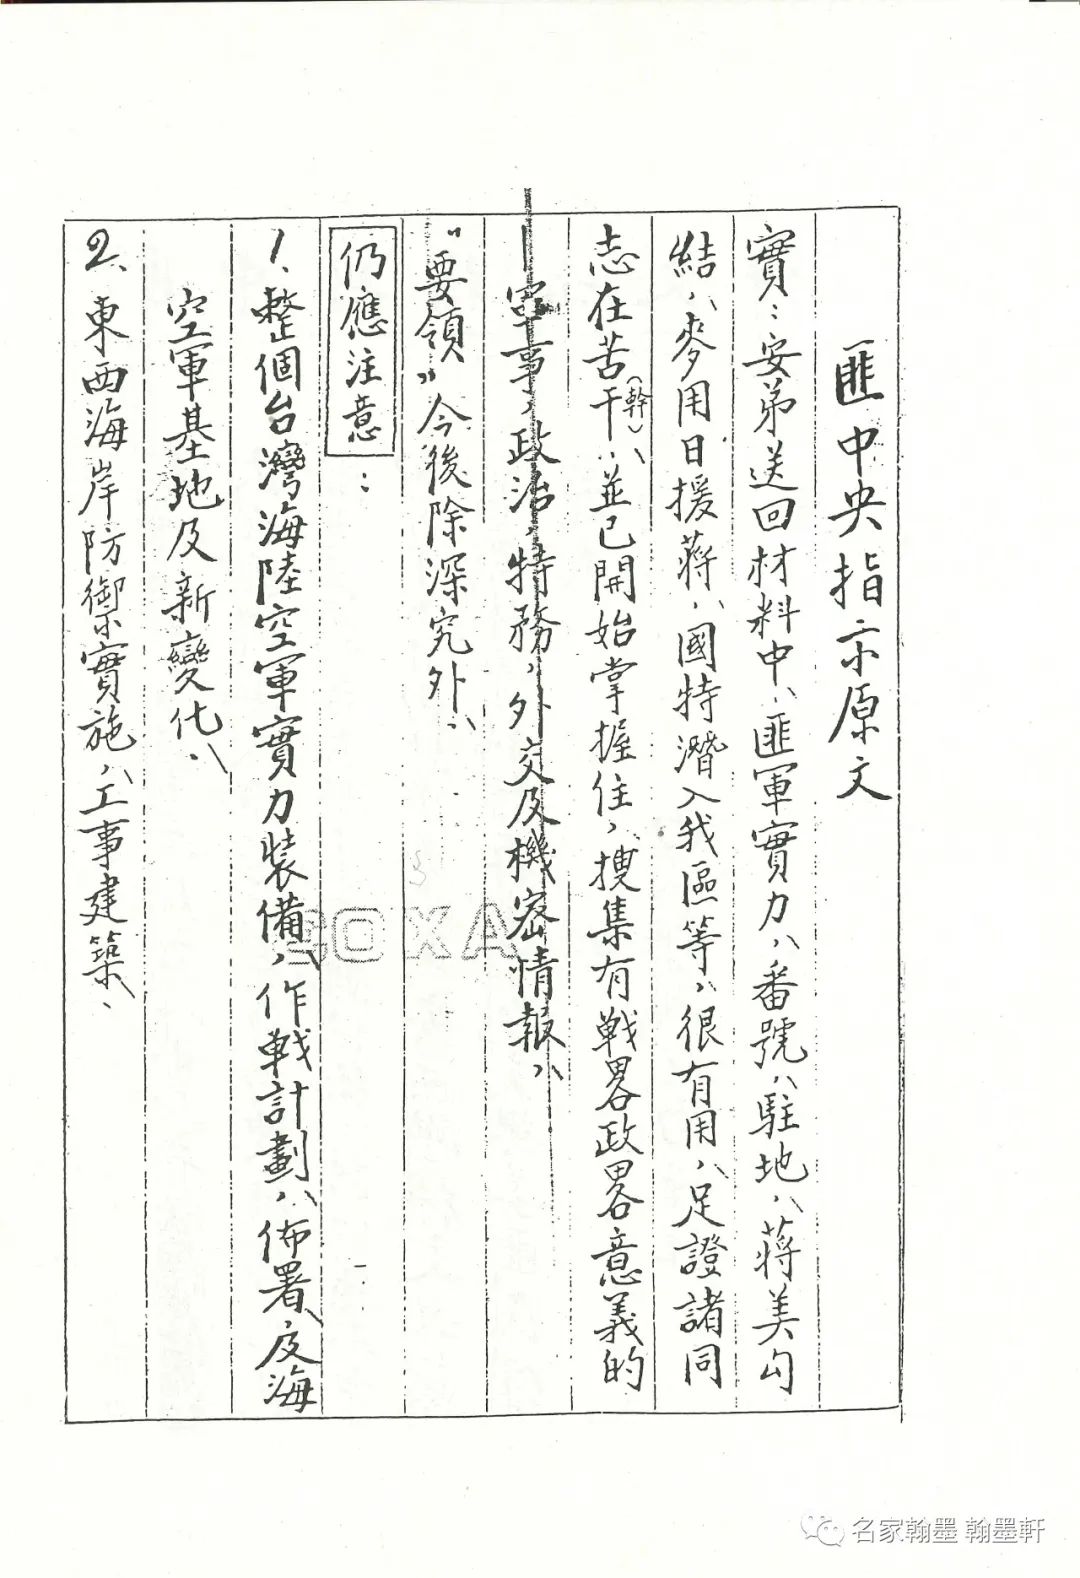 匪中央指示原文
實：安弟送回材料中、匪軍實力、番號、駐地、蔣美勾
結、麥用日援蔣、國特潛入我區等、很有用、足證諸同
志在苦干(幹)、並已開始掌握住，搜集有戰畧政畧意義的
軍事，政治，特務，外交及機密情報、
“要領”今後除深究外、
仍應注意：
1、整個台灣海陸空軍實力裝備、作戰計劃、佈署、及海
空軍基地及新變化、
2、東西海岸防禦實施、工事建築、
COXA
名家翰墨 翰墨軒